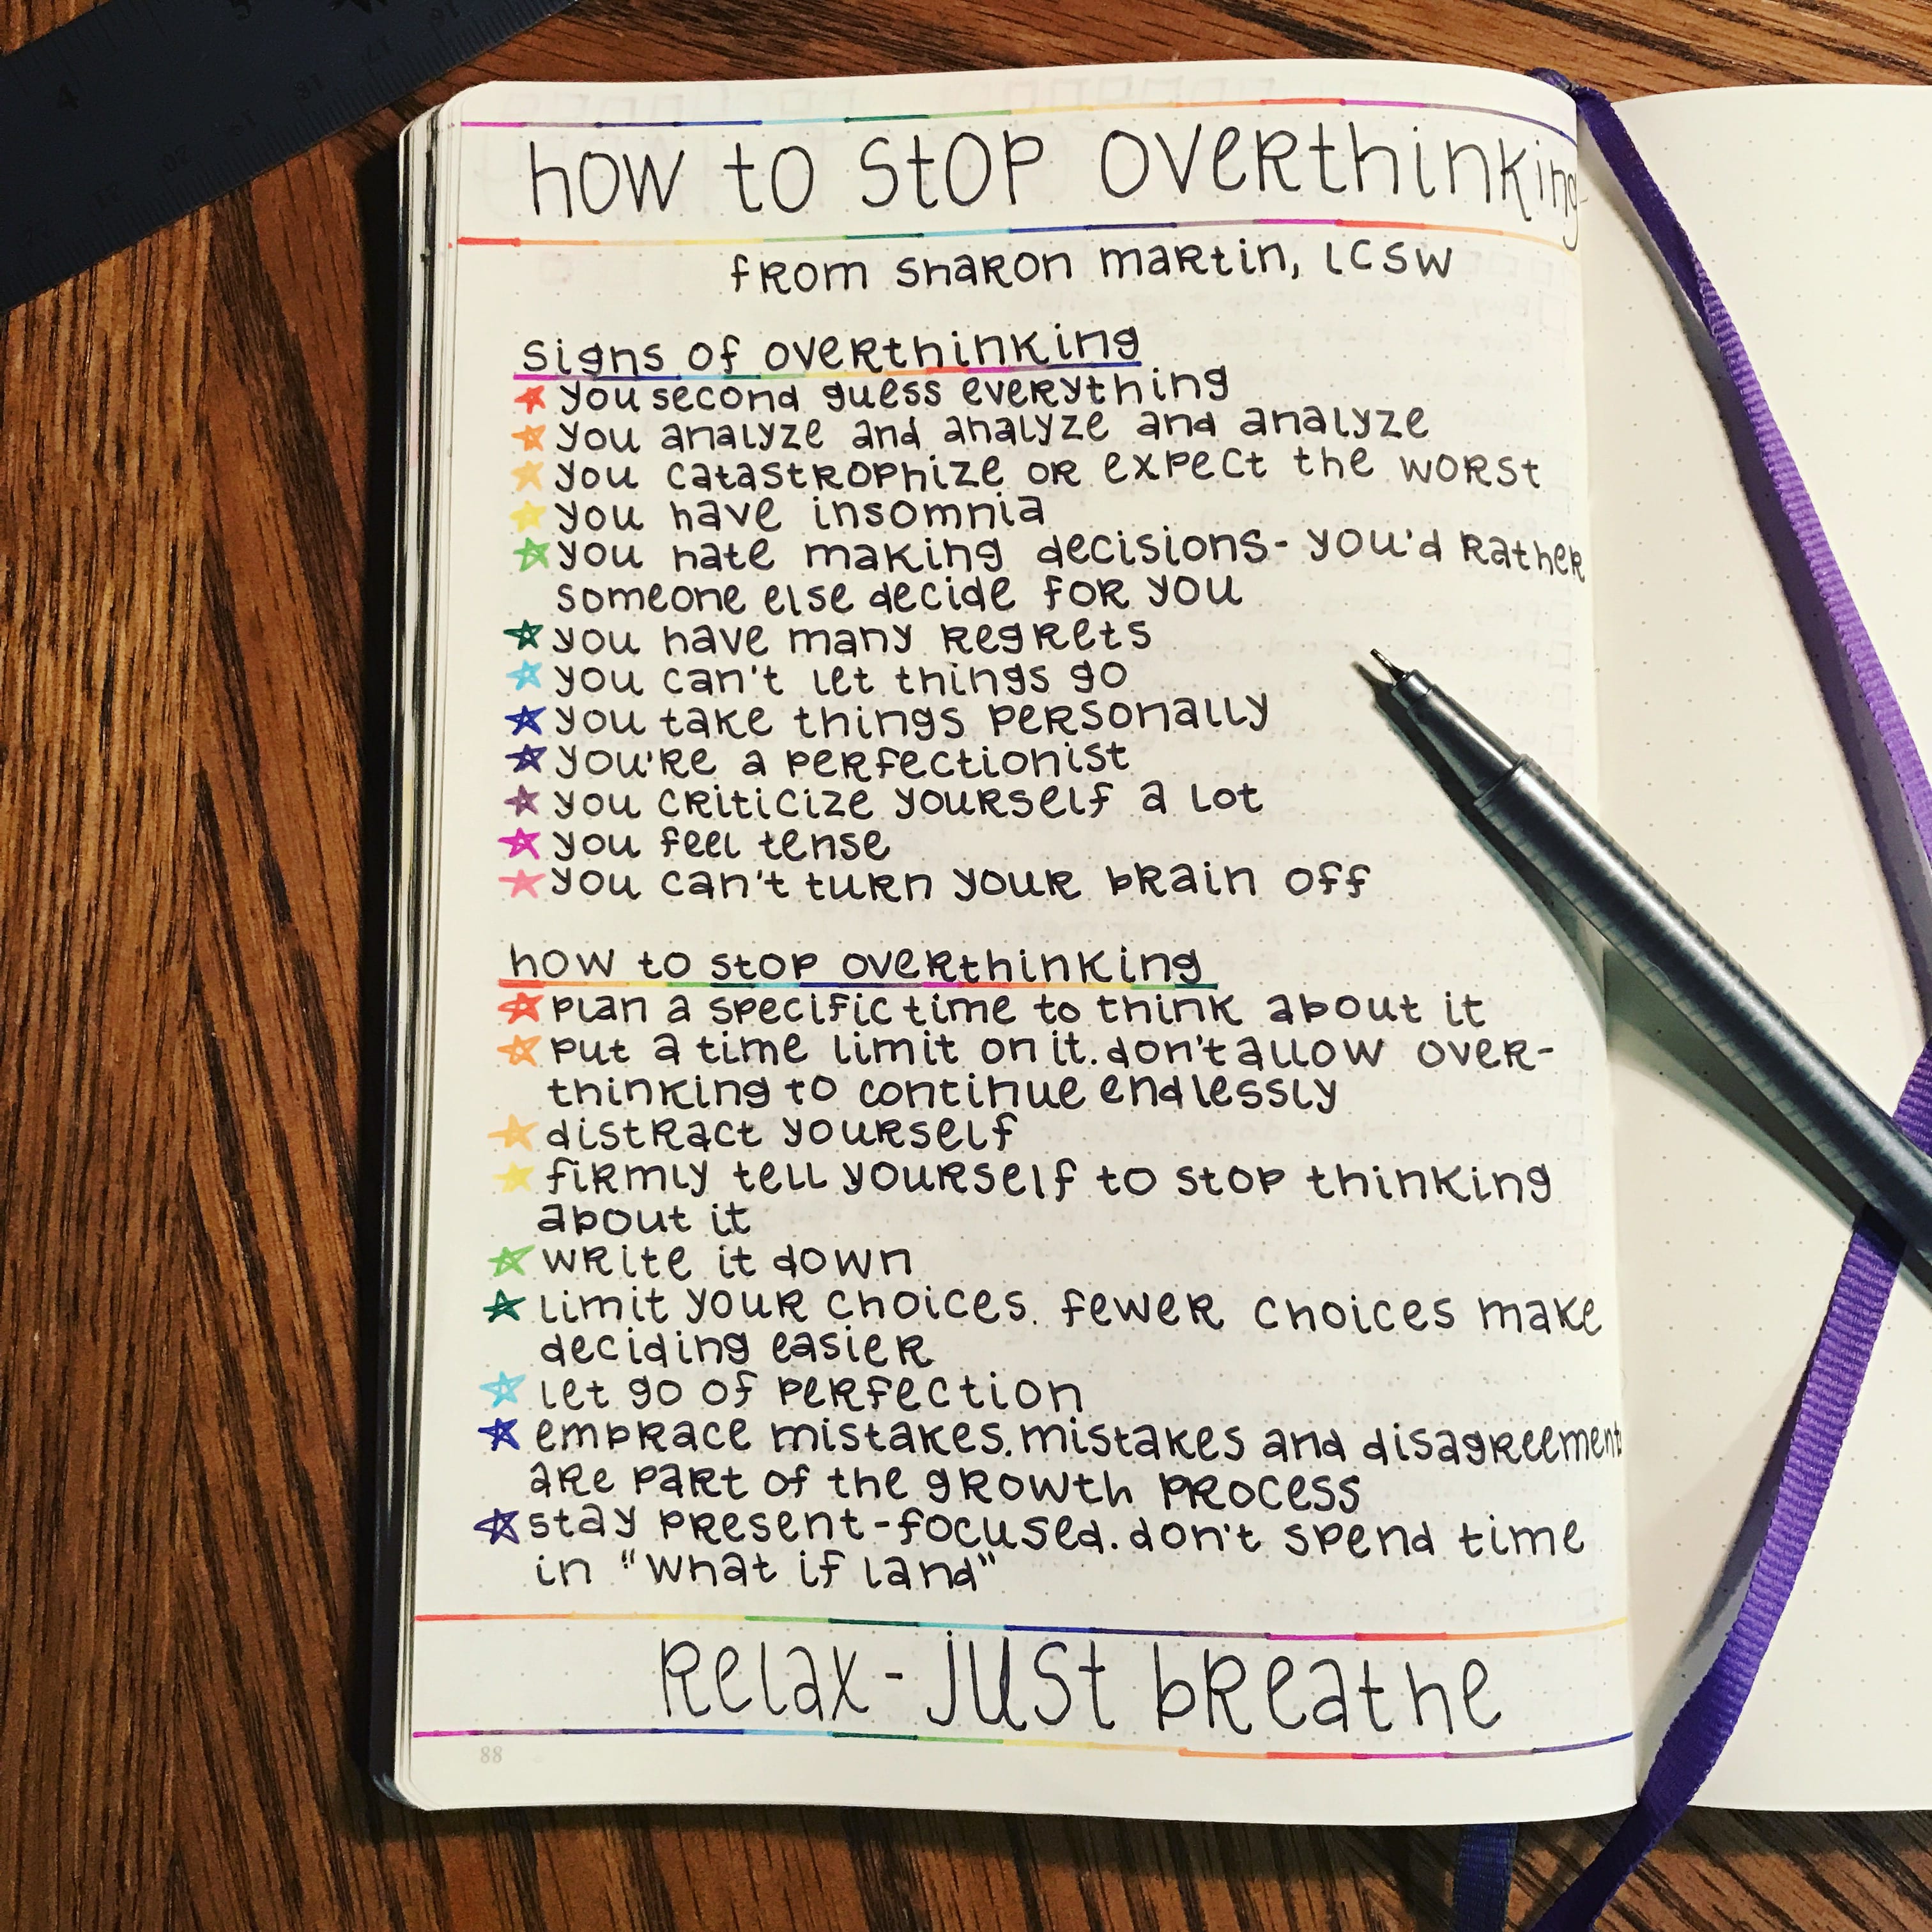 how to stop overthinking
from sharon martin, LCSW
signs of overthinking
you second guess everything
you analyze and analyze and analyze
you catastrophize or expect the worst
you have insomnia
you hate making decisions - you'd rather
someone else decide for you
you have many regrets
you can't let things go
you take things personally
you're a perfectionist
you criticize yourself a lot
you feel tense
you can't turn your brain off
how to stop overthinking
plan a specific time to think about it
put a time limit on it. don't allow over-
thinking to continue endlessly
distract yourself
firmly tell yourself to stop thinking
about it
write it down
limit your choices. fewer choices make
deciding easier
let go of perfection
embrace mistakes. mistakes and disagreements
are part of the growth process
stay present-focused. don't spend time
in "what if land"
relax - just breathe
88